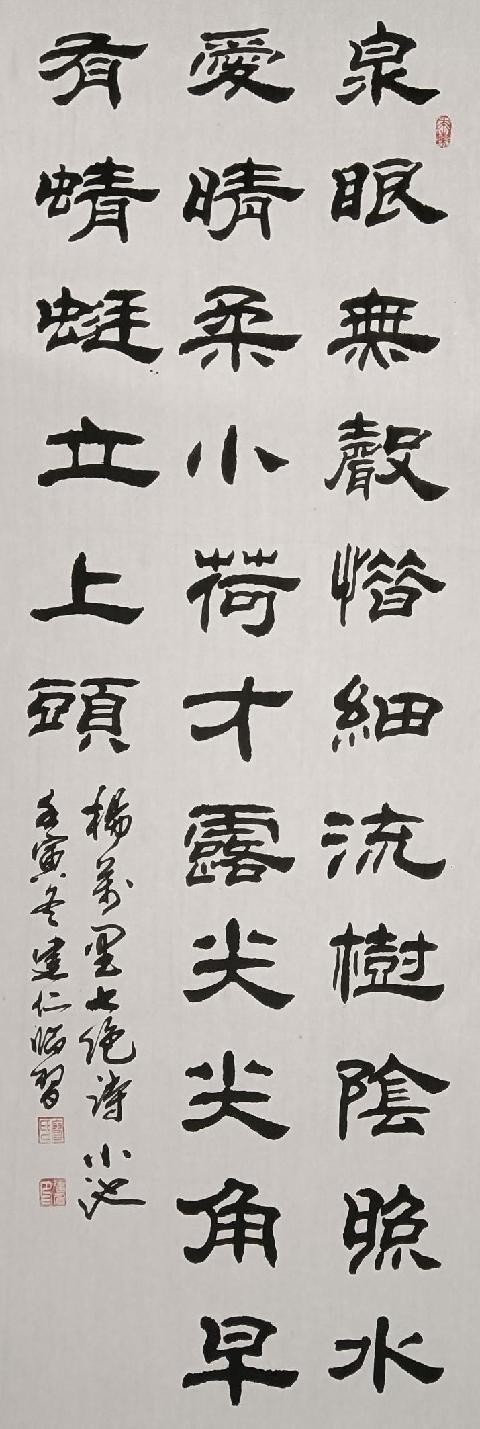 泉眼無聲惜細流樹陰照水
愛晴柔小荷才露尖尖角早
有蜻蜓立上頭
楊萬里七絕詩小池
壬寅冬建仁臨習